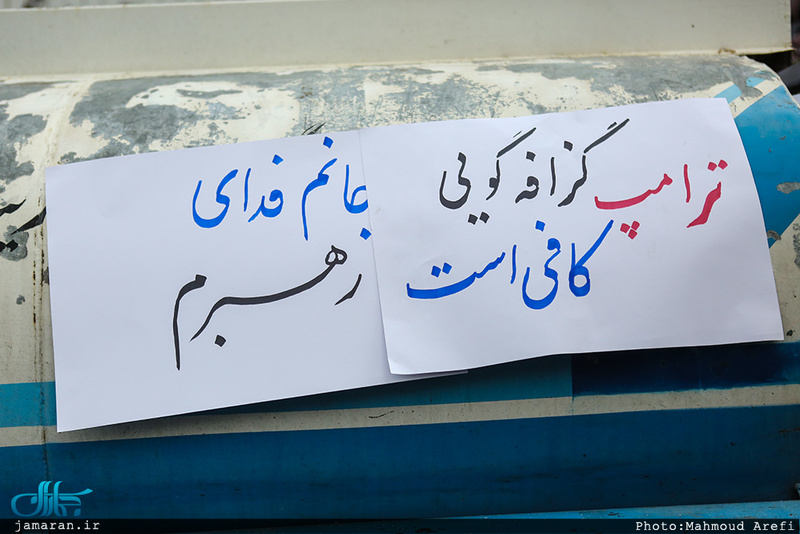 ترامپ گزافه گویی
کافی است
جانم فدای
رهبرم
جماران
jamaran.ir
Photo:Mahmoud Arefi